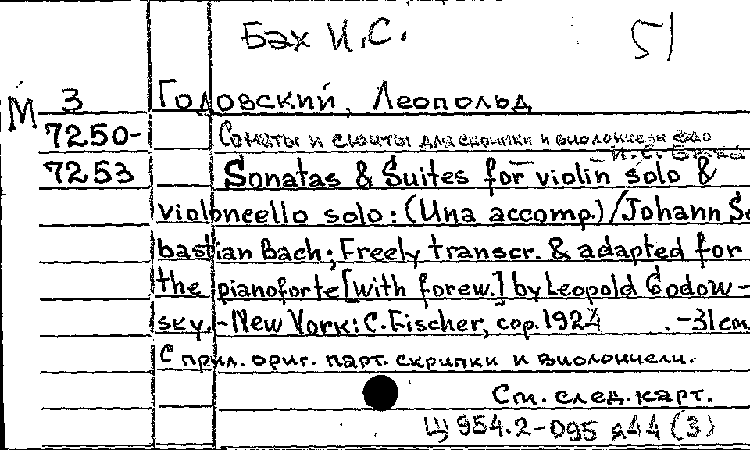 Бах И.С. 51
М 3 Годовский, Леопольд
7250- Сонаты и сюиты для скрипки и виолончели соло
И.С. Баха
7253 Sonatas & Suites for violin solo &
violoncello solo: (Una accomp.)/Johann Se
bastian Bach; Freely transcr. & adapted for
the pianoforte [with forew.] by Leopold Godow-
sky.-New York: C. Fischer, cop. 1924 .-31cm
С прил. ориг. парт. скрипки и виолончели.
См. след. карт.
Ц 954.2-095 д44 (3)